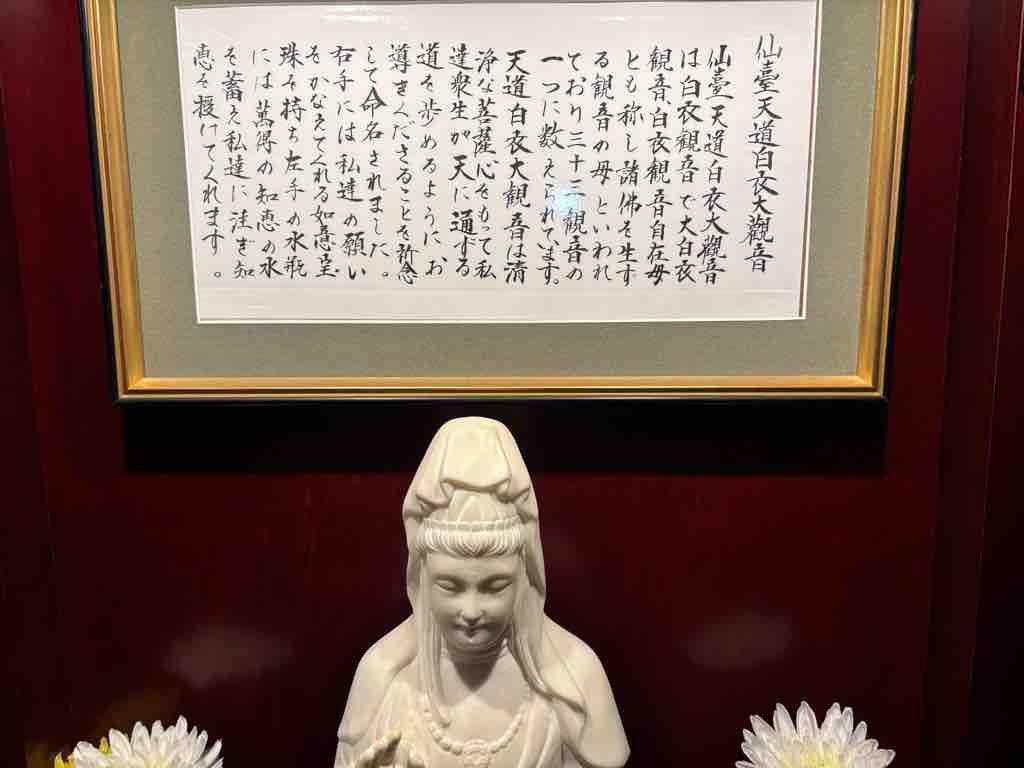 仙臺天道白衣大觀音
仙臺天道白衣大觀音
は白衣観音で大白衣
観音、白衣観音自在母
とも称し諸佛を生す
る観音の母といわれ
ており三十三観音の
一つに数えられています。
天道白衣大観音は清
浄な菩薩心をもって私
達衆生が天に通ずる
道を歩めるように、お
導きくださることを祈念
して命名されました。
右手には私達の願い
をかなえてくれる如意宝
珠を持ち左手の水瓶
には萬得の知恵の水
を蓄え私達に注ぎ知
恵を授けてくれます。